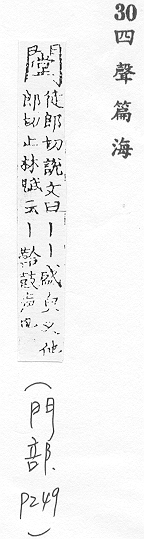 30四聲篇海
闛徒郎切說文曰丨丨盛皃又他
郎切上林賦云丨鞈鼓聲
(門部 P249)